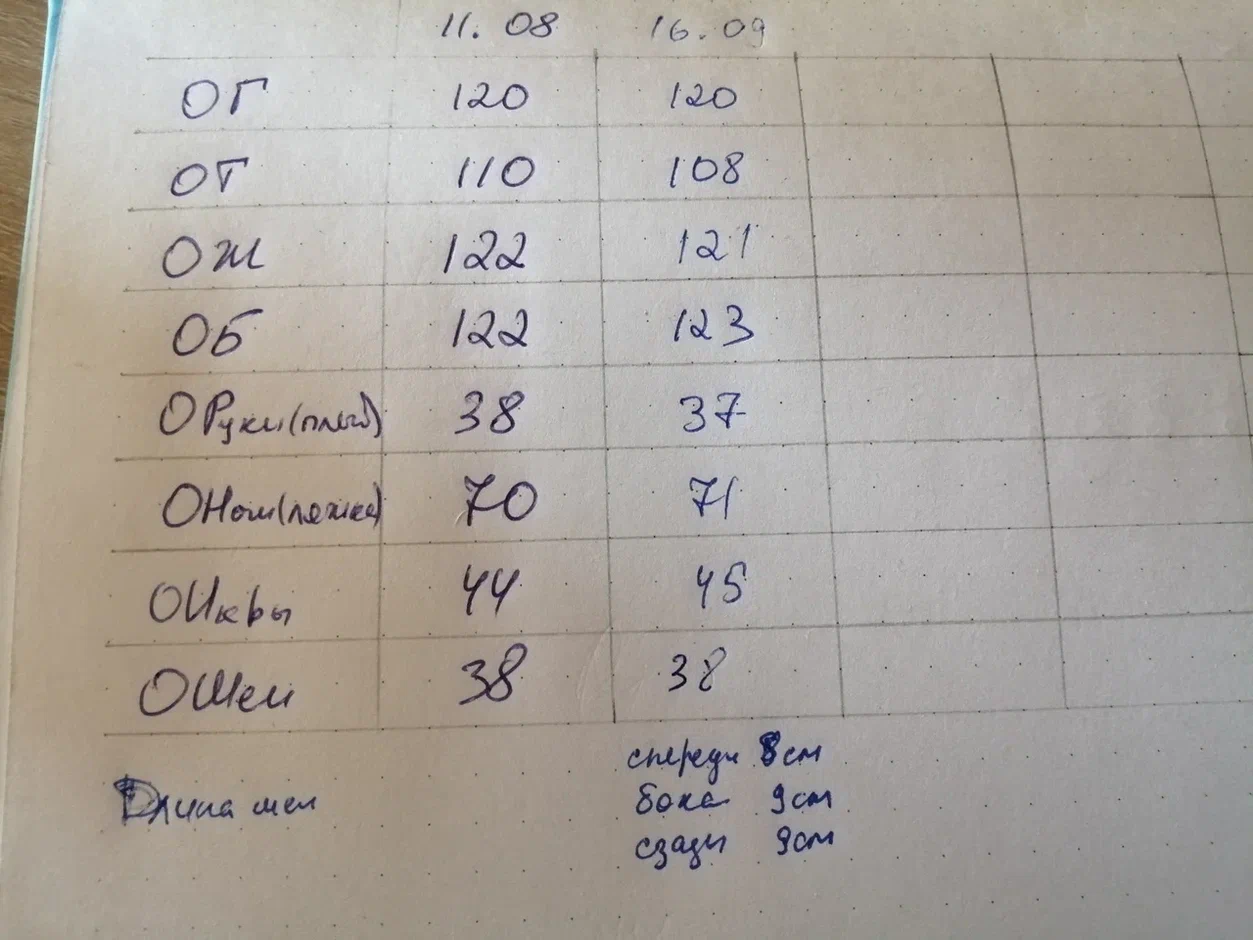 11.08 16.09
ОГ 120 120
ОТ 110 108
ОЖ 122 121
ОБ 122 123
ОРуки 38 37
ОНоги(ляжка) 70 71
ОИкры 44 45
ОШеи 38 38
спереди 8см
Длина шеи бока 9см
сзади 9см